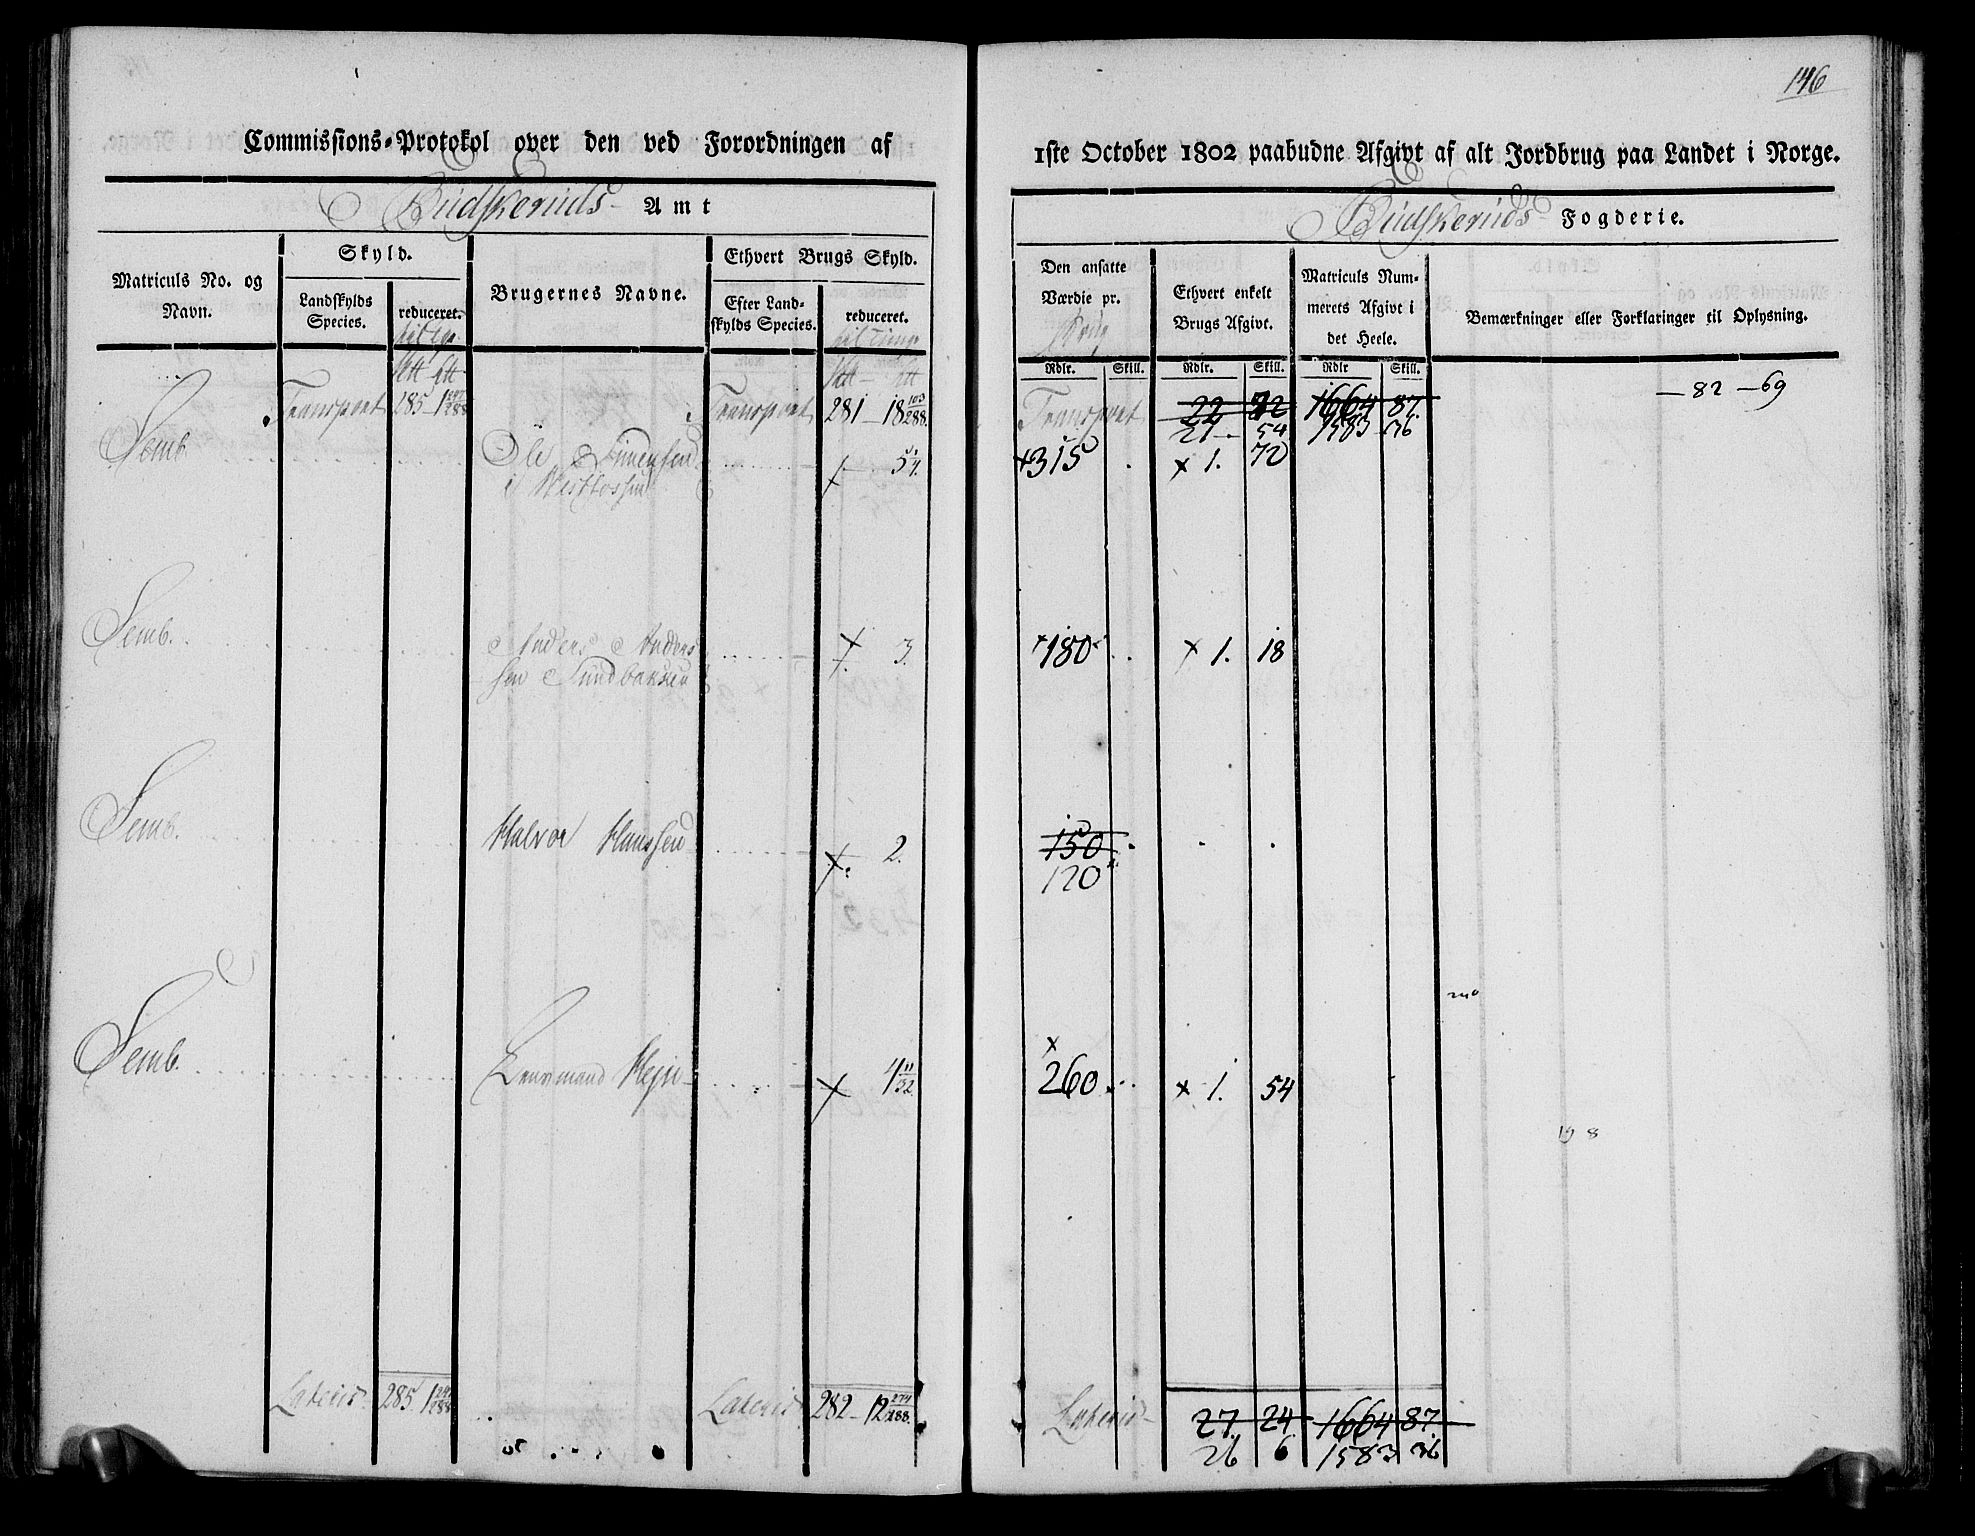 146
Commissions-Protokol over den ved Forordningen af
1ste October 1802 paabudne Afgivt af alt Jordbrug paa Landet i Norge.
Budskeruds Amt
Budskeruds Fogderie.
Matriculs No. og Navn.
Skyld.
Landskylds Species.
reduceret.
Brugernes Navne.
Ethvert Brugs Skyld.
Efter Landskylds Species.
reduceret.
Den ansatte Værdie pr. Brug
Ethvert enkelt Brugs Afgivt.
Matriculs Nummerets Afgivt i det Heele.
Bemærkninger eller Forklaringer til Oplysning.
Rdlr. Skill. Rdlr. Skill. Rdlr Skill.
Transport 285-1 Transport 281-18 103/288. Transport 22 1664 87.
21 54 1583 36
— 82 — 69
Semb. Ole Simensen 315 1. 72
i
Semb. Anders Anders 3. 180 1. 18
sen Sundbakken
Semb. Halvor Hanssen 2. 150
120
Semb. Lensmand 4 11/32. 260 1. 54
Lateris 285-1 Lateris 282-12 274/288. Lateris 27. 24 1664 87.
26 6 1583 36